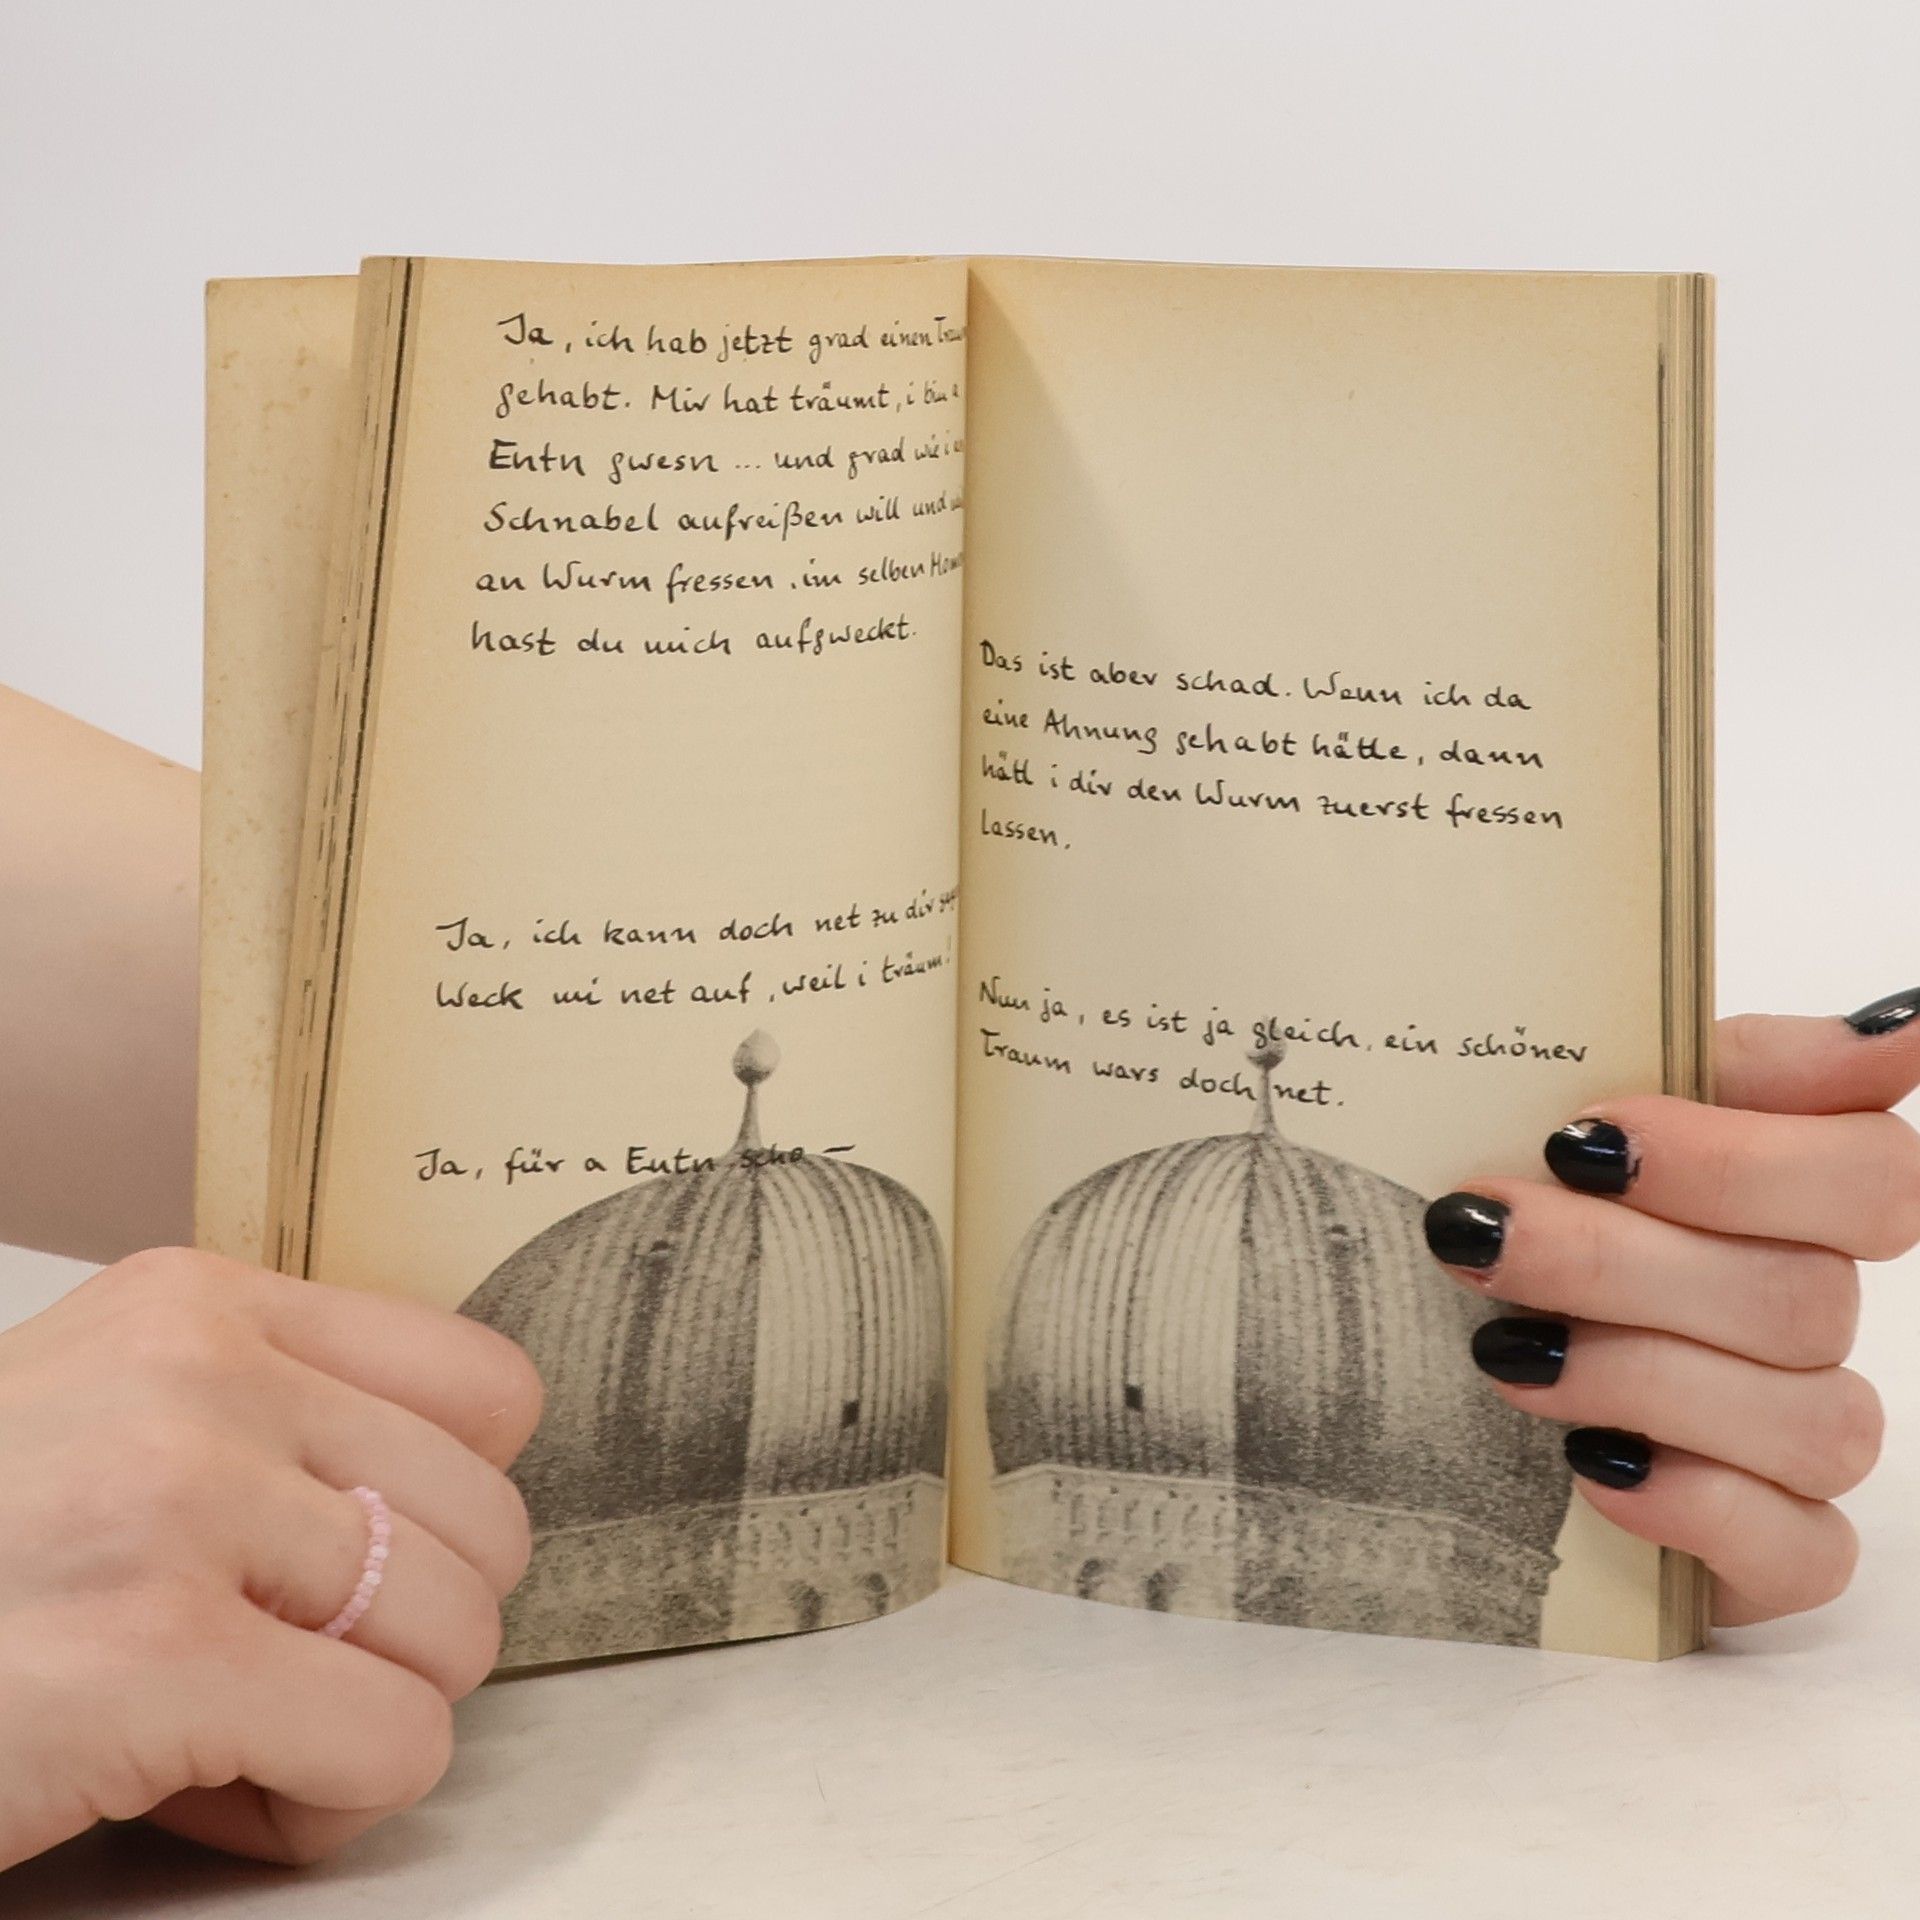 Ja, ich hab jetzt grad einen
gehabt. Mir hat träumt, i bin a
Entn gwesn ... und grad wie i
Schnabel aufreißen will und
an Wurm fressen, im selben
hast du mich aufgweckt.
Ja, ich kann doch net zu dir
Weck mi net auf, weil i träum!
Ja, für a Entn scho –
Das ist aber schad. Wenn ich da
eine Ahnung gehabt hätte, dann
hätt i dir den Wurm zuerst fressen
lassen.
Nun ja, es ist ja gleich, ein schöner
Traum wars doch net.